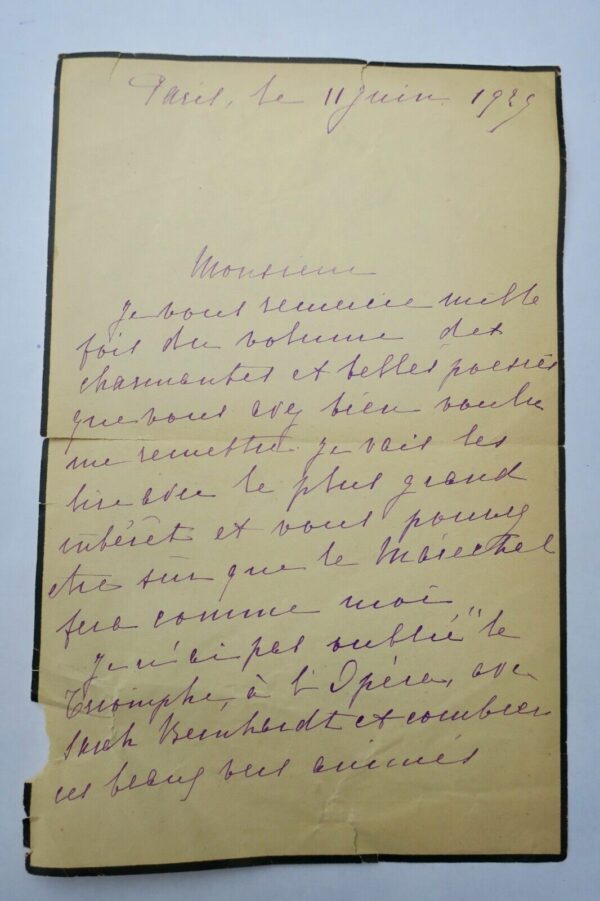 Paris, le 11 Juin 1929
Monsieur
Je vous remercie mille
fois du volume des
charmantes et belles poesies
que vous avez bien voulu
me remettre. Je vais les
lire avec le plus grand
intérêt et vous pouvez
etre sûr que le Maréchal
fera comme moi
Je n'ai pas oublié "le
Triomphe, à l'Opéra, avec
Sarah Bernhardt et combien
ces beaux vers animés